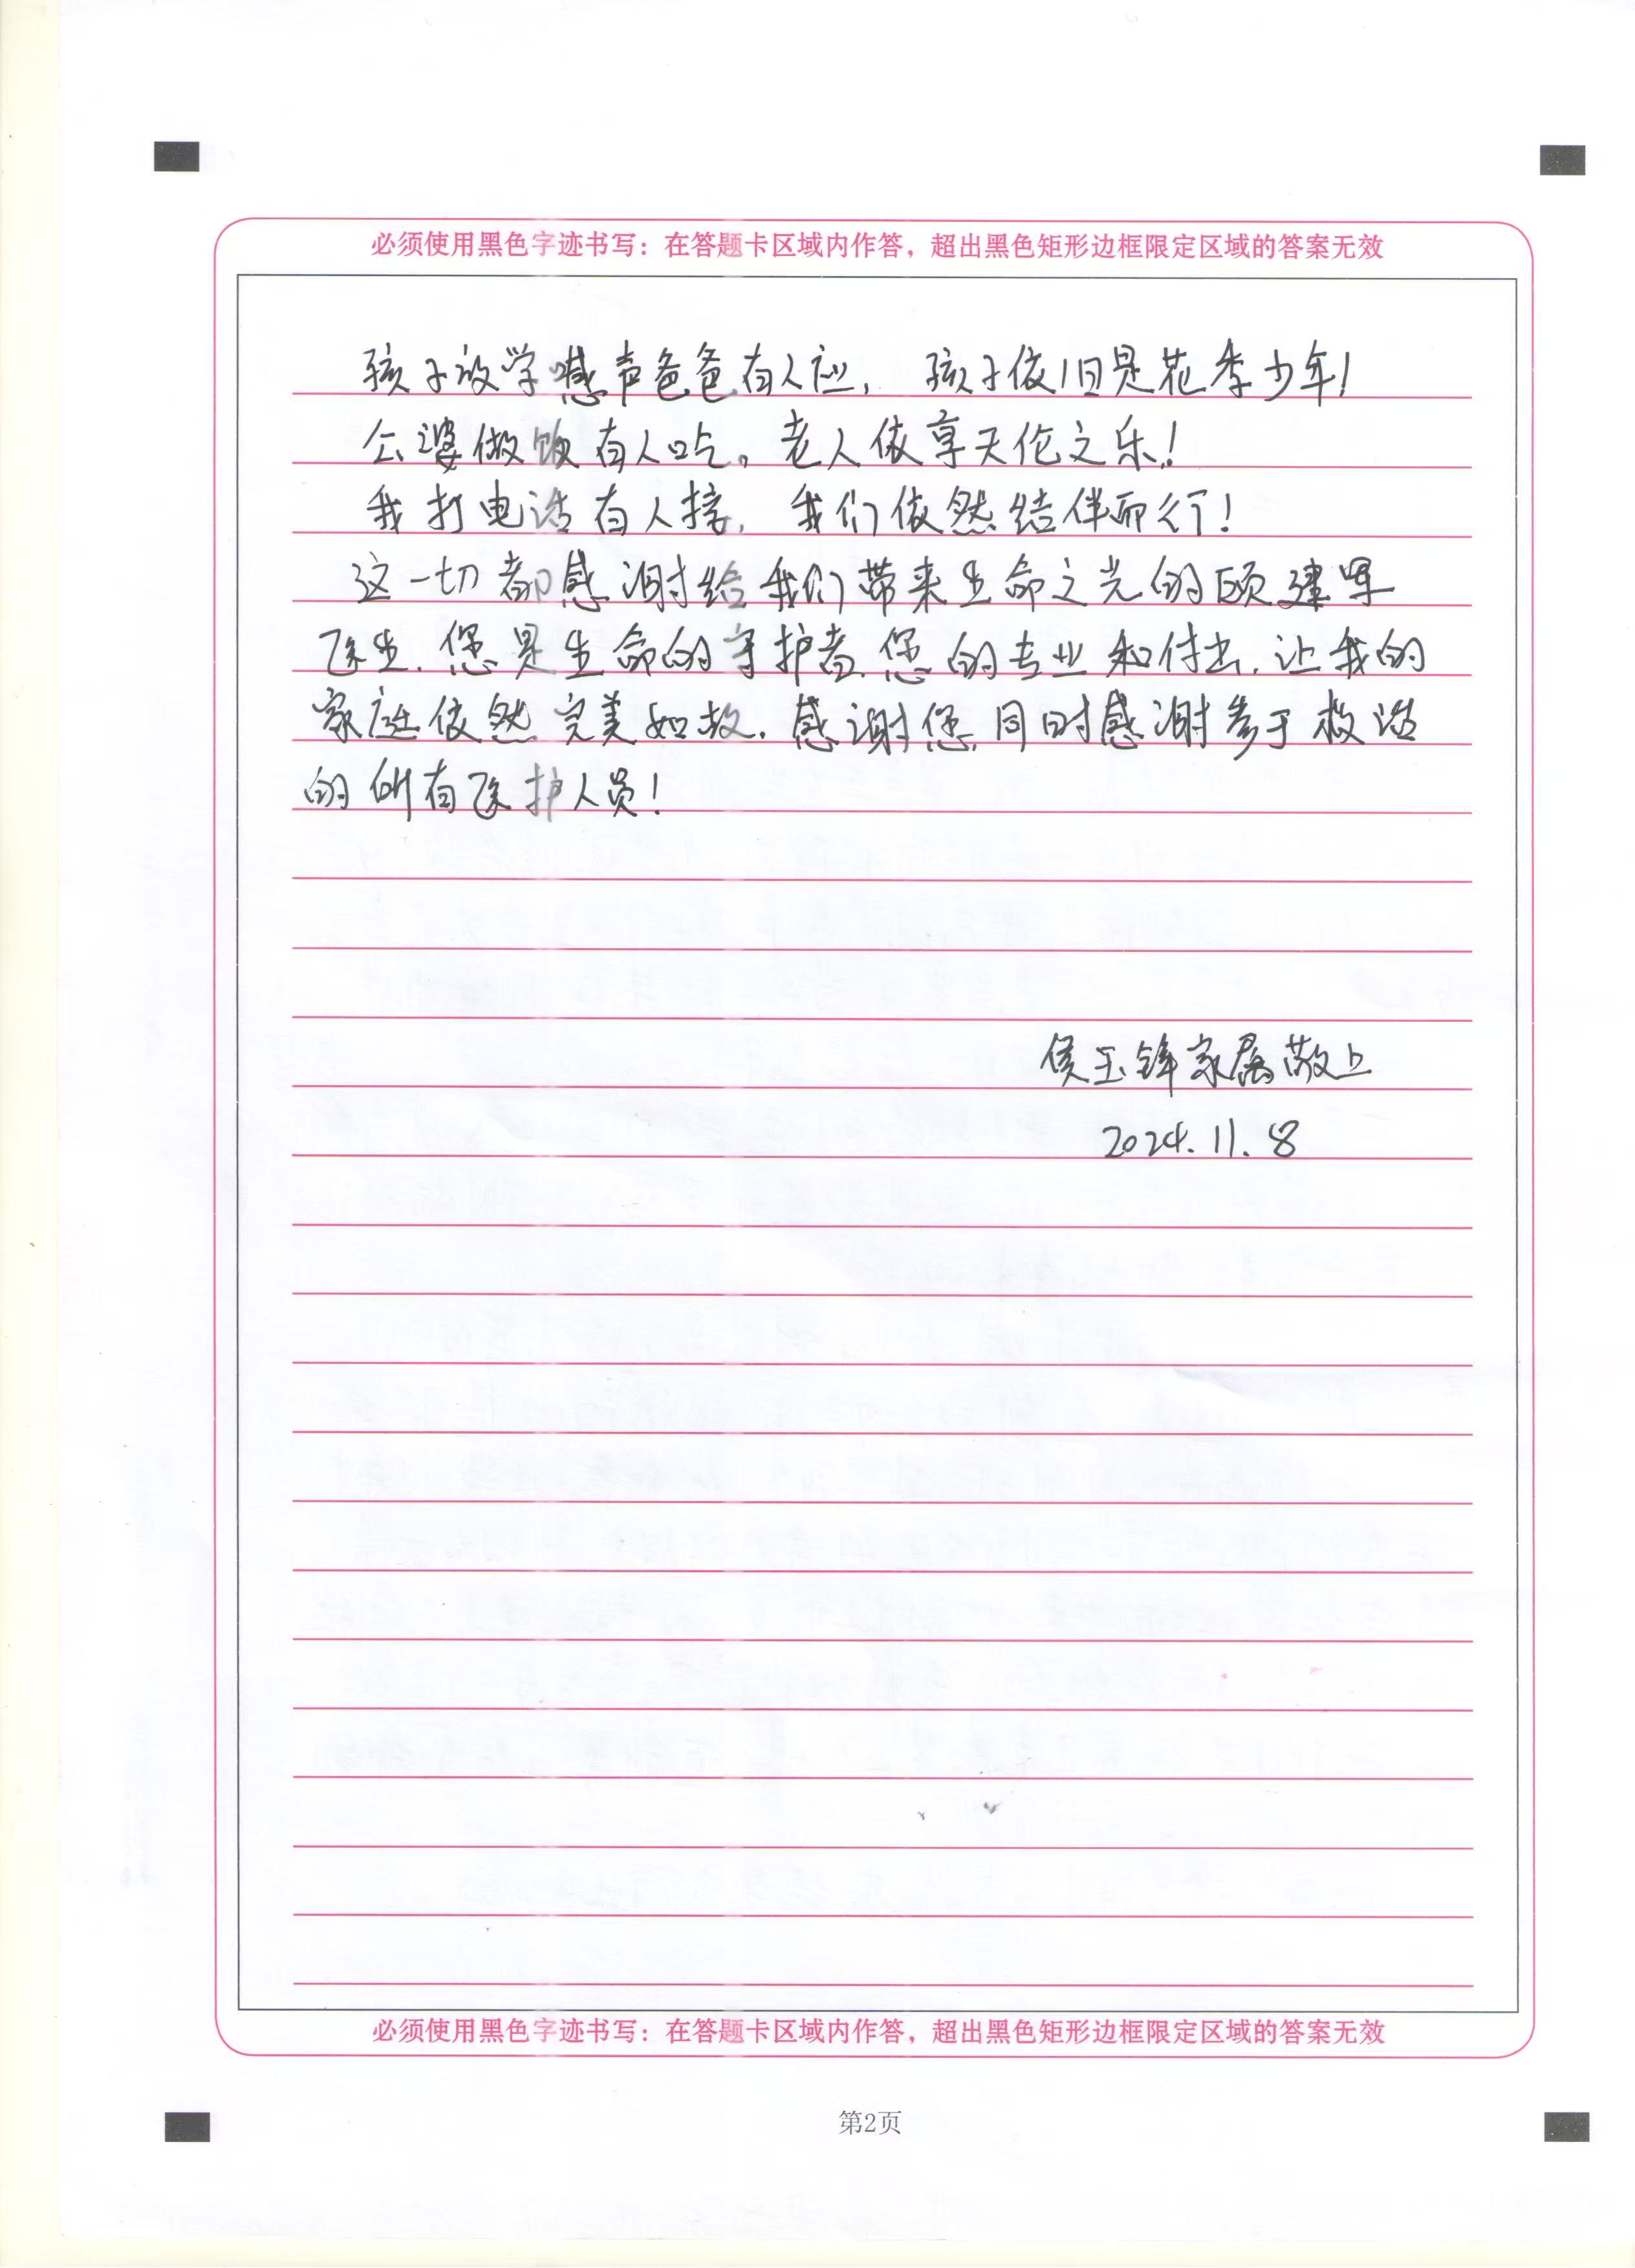 必须使用黑色字迹书写：在答题卡区域内作答，超出黑色矩形边框限定区域的答案无效
孩子放学喊声爸爸有人应，孩子依旧是花季少年！
公婆做饭有人吃。老人依享天伦之乐！
我打电话有人接，我们依然结伴而行！
这一切都感谢给我们带来生命之光的顾建军
医生.您是生命的守护者.您的专业和付出.让我的
家庭依然完美如故.感谢您,同时感谢参于救治
的所有医护人员！
侯玉锋家属敬上
2024.11.8
必须使用黑色字迹书写：在答题卡区域内作答，超出黑色矩形边框限定区域的答案无效
第2页